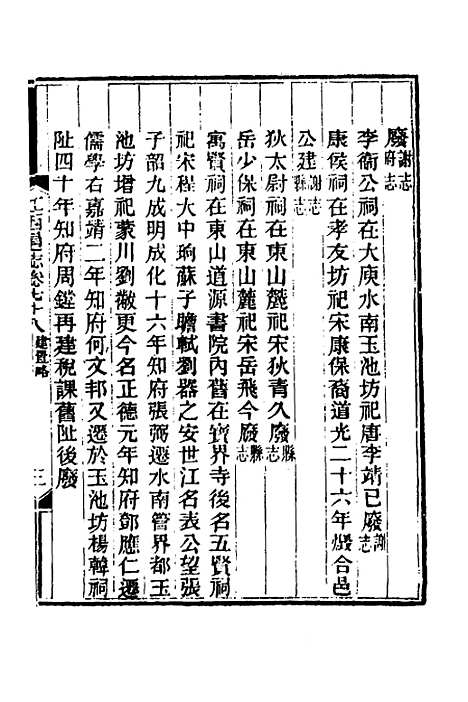 廢謝志府志
李衞公祠在大庾水南玉池坊祀唐李靖已廢謝志
康侯祠在孝友坊祀宋康保裔道光二十六年燬合邑
公建謝志縣志
狄太尉祠在東山麓祀宋狄青久廢縣志
岳少保祠在東山麓祀宋岳飛今廢縣志
寓賢祠在東山道源書院內舊在寶界寺後名五賢祠
祀宋程大中珦蘇子瞻軾劉器之安世江名表公望張
子韶九成明成化十六年知府張弼遷水南管界都玉
池坊增祀蒙川劉黻更今名正德元年知府鄧應仁遷
儒學右嘉靖二年知府何文邦又遷於玉池坊楊韓祠
址四十年知府周鏜再建稅課舊址後廢
江西通志卷七十八 建置略 三